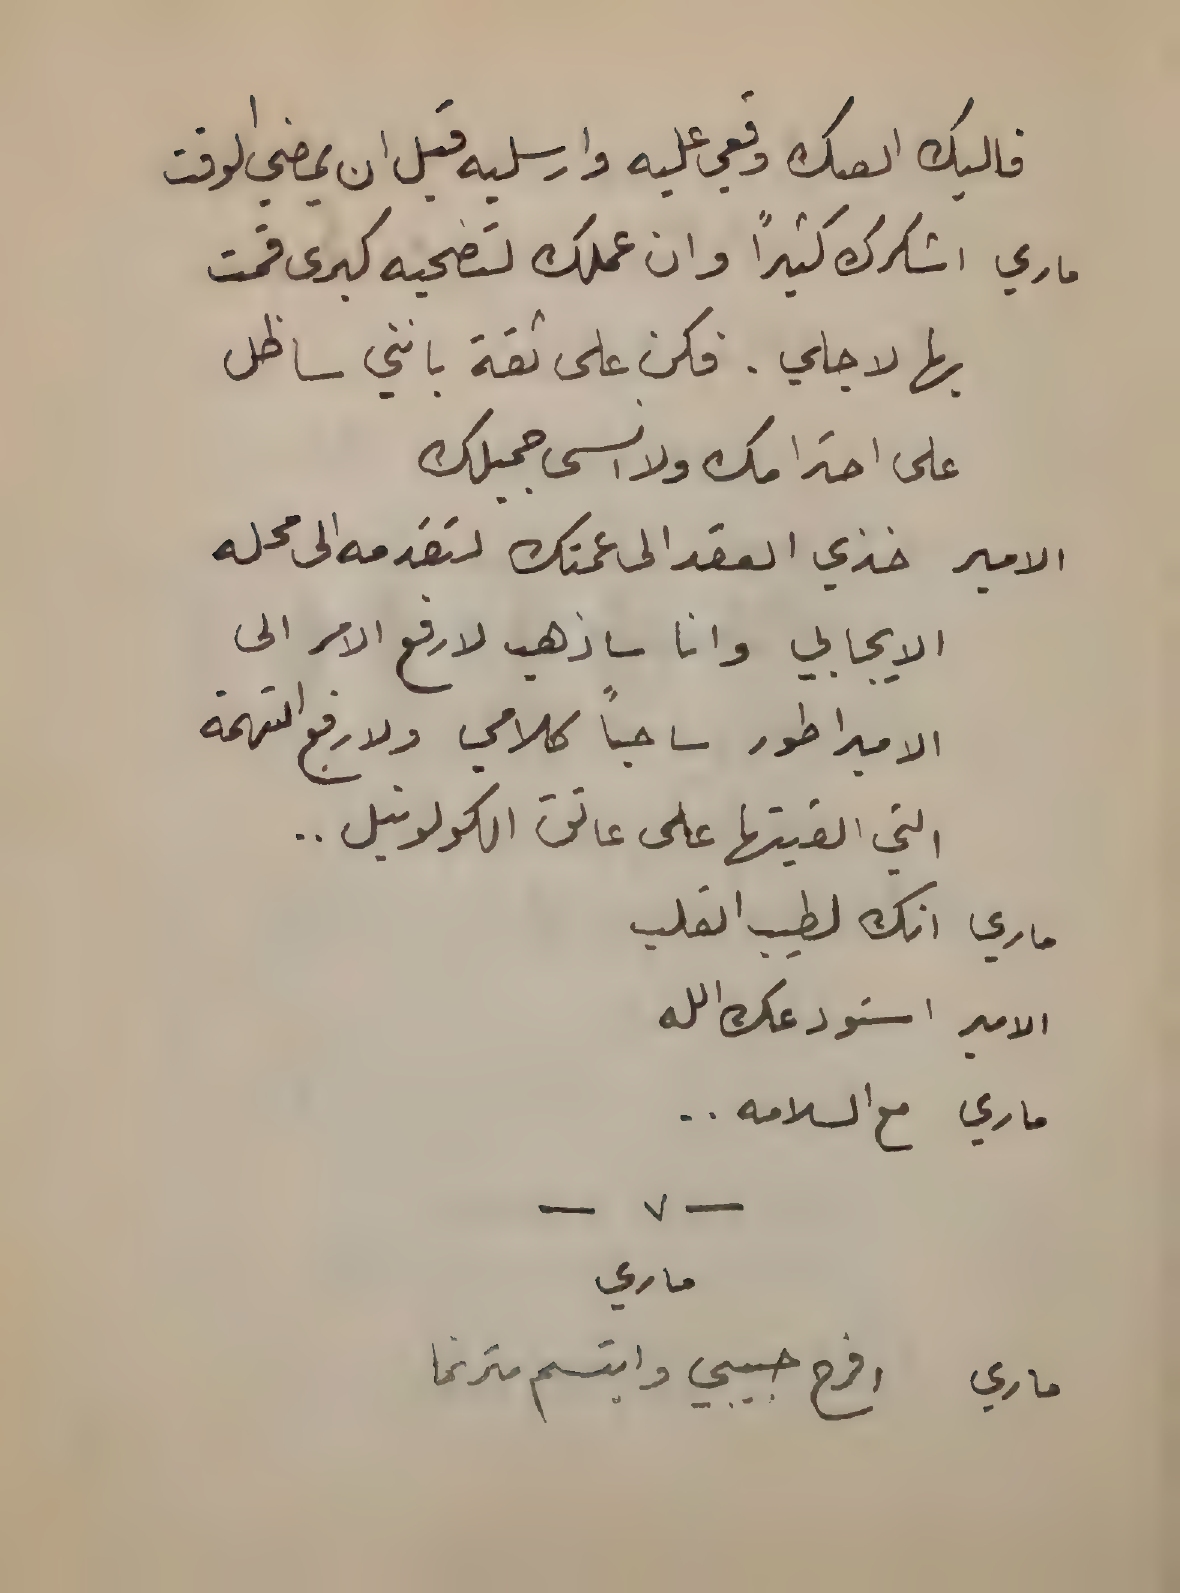 فاليك الصك وقعي عليه وارسليه قبل ان يمضي الوقت
ماري اشكرك كثيراً وان عملك لتضحيه كبرى قمت
بها لاجلي . فكن على ثقة بانني ساظل
على احترامك ولا انسى جميلك
الامير خذي العقد الى عمتك لتقدمه الى محله
الايجابي وانا ساذهب لارفع الامر الى
الامبراطور ساحباً كلامي ولارفع التهمة
التي القيتها على عاتق الكولونيل ..
ماري انك لطيب القلب
الامير استودعك الله
ماري مع السلامه ..
— ٧ —
ماري
ماري افرح حبيبي وابتسم مترنما